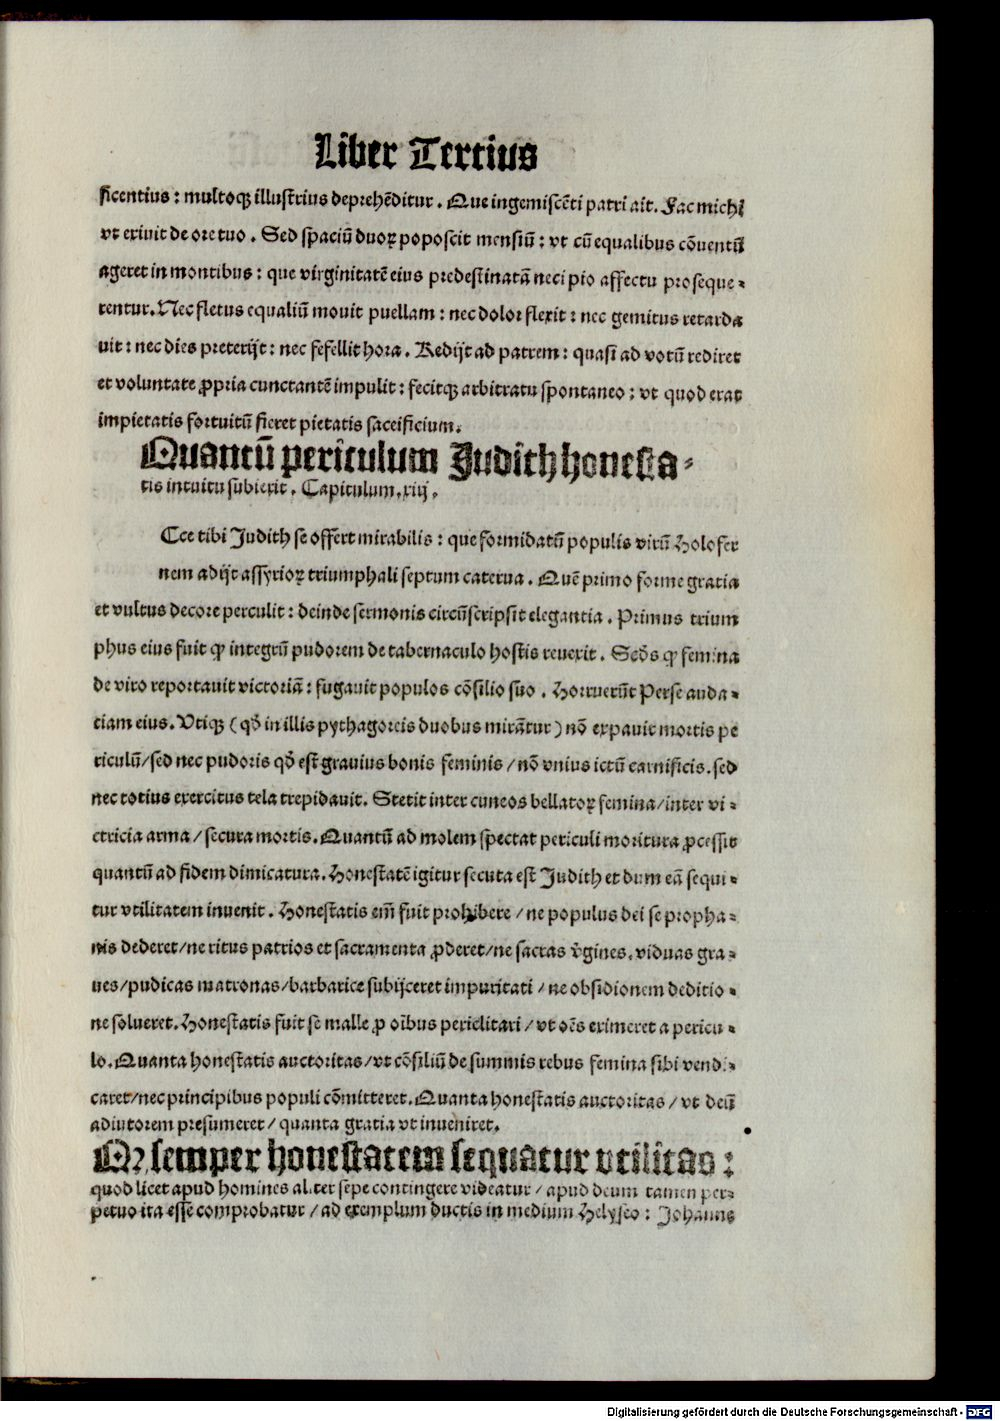 Liber Tertius
ficentius : multoqꝫ illustrius deprehēditur . Que ingemiscēti patri ait. Fac michi
vt exiuit de ore tuo . Sed spaciū duoꝝ poposcit mensiū : vt cū equalibus cōuentū
ageret in montibus : que virginitatē eius predestinatā neci pio affectu proseque⸗
rentur. Nec fletus equaliū mouit puellam : nec dolor flexit : nec gemitus retarda
uit : nec dies preterijt : nec fefellit hora . Redijt ad patrem : quasi ad votū rediret
et voluntate ꝓpria cunctantē impulit : fecitqꝫ arbitratu spontaneo ; vt quod erat
impietatis fortuitū fieret pietatis saceificium.
Quantū periculum Judith honesta⸗
tis intuitu subiexit . Capitulum. xiij .
Ecce tibi Judith se offert mirabilis : que formidatū populis virū Holofer
nem adijt assyrioꝝ triumphali septum caterua . Quē primo forme gratia
et vultus decore perculit : deinde sermonis circūscripsit elegantia . Primus trium
phus eius fuit ꝙ integrū pudorem de tabernaculo hostis reuexit . Secd̄s ꝙ femina
de viro reportauit victoriā : fugauit populos cōsilio suo . Horruerūt Perse auda⸗
ciam eius. Vtiqꝫ ( qd̄ in illis pythagoreis duobus mirātur ) nō expauit mortis pe
riculū/ sed nec pudoris qd̄ est grauius bonis feminis / nō vnius ictū carnificis. sed
nec totius exercitus tela trepidauit. Stetit inter cuneos bellatoꝝ femina/ inter vi⸗
ctricia arma / secura mortis. Quantū ad molem spectat periculi moritura ꝓcessit
quantū ad fidem dimicatura. Honestatē igitur secuta est Judith et dum eā sequi⸗
tur vtilitatem inuenit . Honestatis em̄ fuit prohibere / ne populus dei se propha⸗
nis dederet/ ne ritus patrios et sacramenta ꝓderet/ ne sacras v̄gines. viduas gra⸗
ues/ pudicas matronas/ barbarice subijceret impuritati / ne obsidionem deditio⸗
ne solueret. Honestatis fuit se malle ꝓ oībus periclitari / vt oēs eximeret a pericu⸗
lo. Quanta honestatis auctoritas/ vt cōsiliū de summis rebus femina sibi vendi⸗
caret/ nec principibus populi cōmitteret. Quanta honestatis auctoritas / vt deū
adiutorem presumeret/ quanta gratia vt inueniret.
Qꝫ semper honestatem sequatur vtilitas :
quod licet apud homines aliter sepe contingere videatur / apud deum tamen per⸗
petuo ita esse comprobatur / ad exemplum ductis in medium Helyseo : Johanne
Digitalisierung gefördert durch die Deutsche Forschungsgemeinschaft - DFG